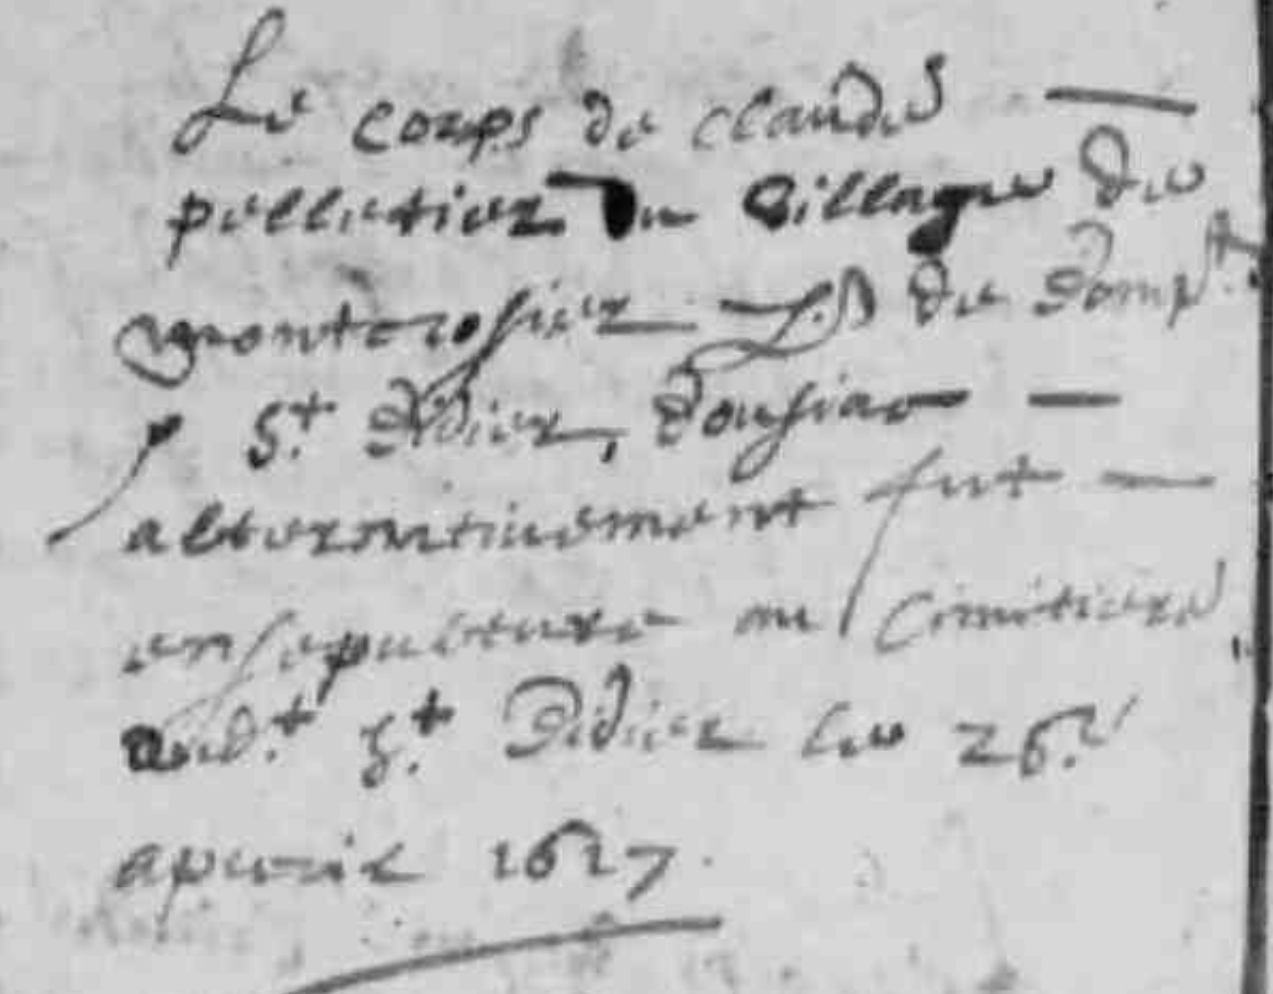 Le corps de claude
pelletier du village de
monterosier P.sse de domp.t
S.t didier, dousiat
alternativement fut
ensepulture au Cimitiere
dud.t S.t Didier le 26.e
apuril 1627.